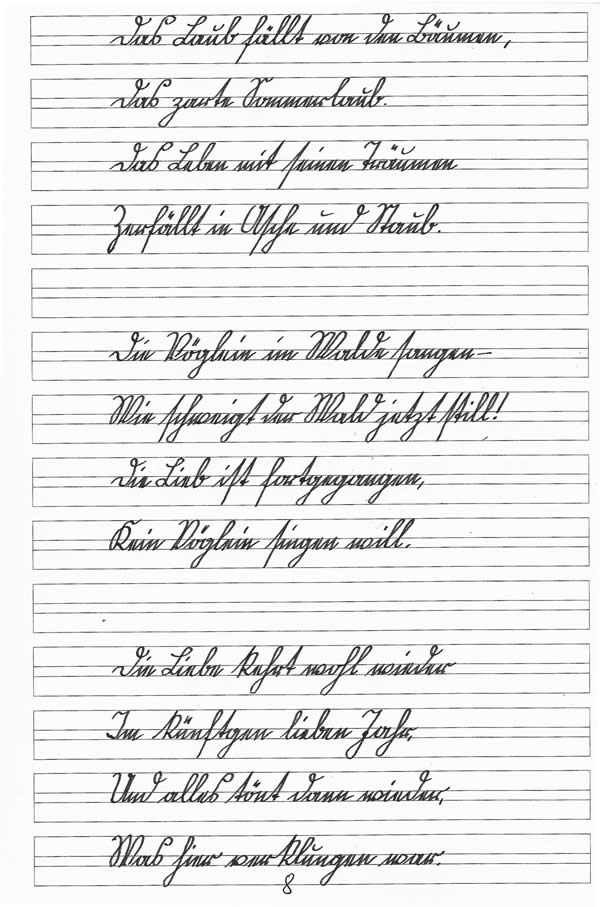 Das Laub fällt von den Bäumen,
das zarte Sommerlaub.
Das Leben mit seinen Träumen
Zerfällt in Asche und Staub.
Die Vöglein im Walde sangen–
Wie schweigt der Wald jetzt still!
Die Lieb ist fortgegangen,
Kein Vöglein singen will.
Die Liebe kehrt wohl wieder
Im künftgen lieben Jahr,
Und alles tönt dann wieder,
Was hier verklungen war.
8